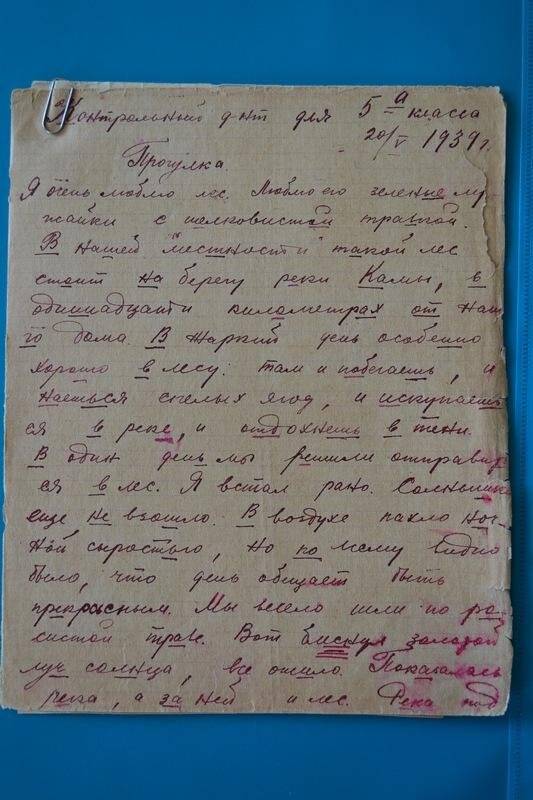 Контрольный д-нт для 5 а класса
20/V 1939 г.
Прогулка.
Я очень люблю лес. Люблю его зеленые лу
жайки с шелковистой травкой.
В нашей местности такой лес
стоит на берегу реки Камы, в
одиннадцати километрах от наше
го дома. В жаркий день особенно
хорошо в лесу: там и побегаешь, и
наешься спелых ягод, и искупаешь
ся в реке, и отдохнешь в тени.
В один день мы решили отправить
ся в лес. Я встал рано. Солнышко
еще не взошло. В воздухе пахло ноч
ной сыростью, но по всему видно
было, что день обещает быть
прекрасным. Мы весело шли по ро
систой траве. Вот блиснул золотой
луч солнца, все ожило. Показалась
река, а за ней и лес. Река под